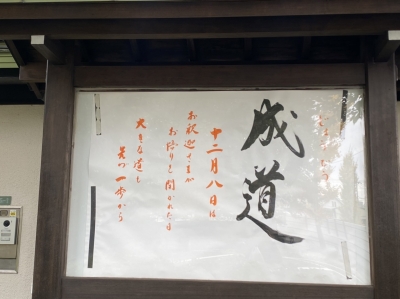 じょうどう
成道
十二月八日は
お釈迦さまが
お悟りを開かれた日
大きな道も
先づ一歩から